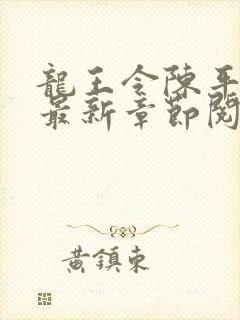 龍王令陳平
最新章節閱
黃鎮東